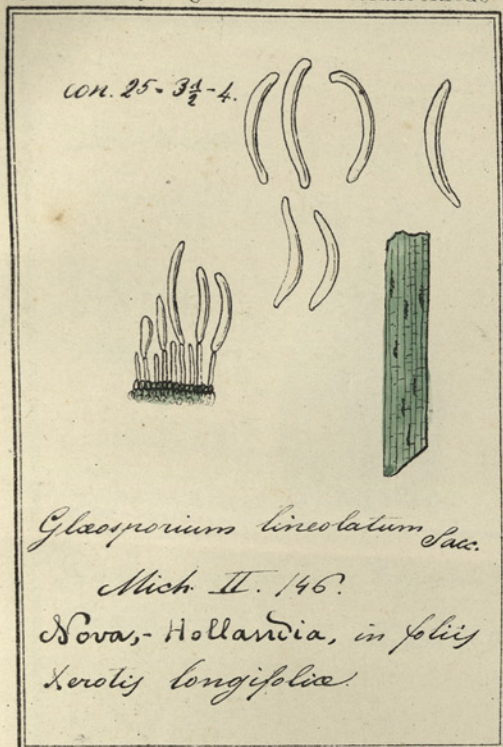 con. 25 = 3½ - 4.
Glæosporium lineolatum Sacc.
Mich. II. 146.
Nova,- Hollandia, in foliis
Xerotis longifoliæ.